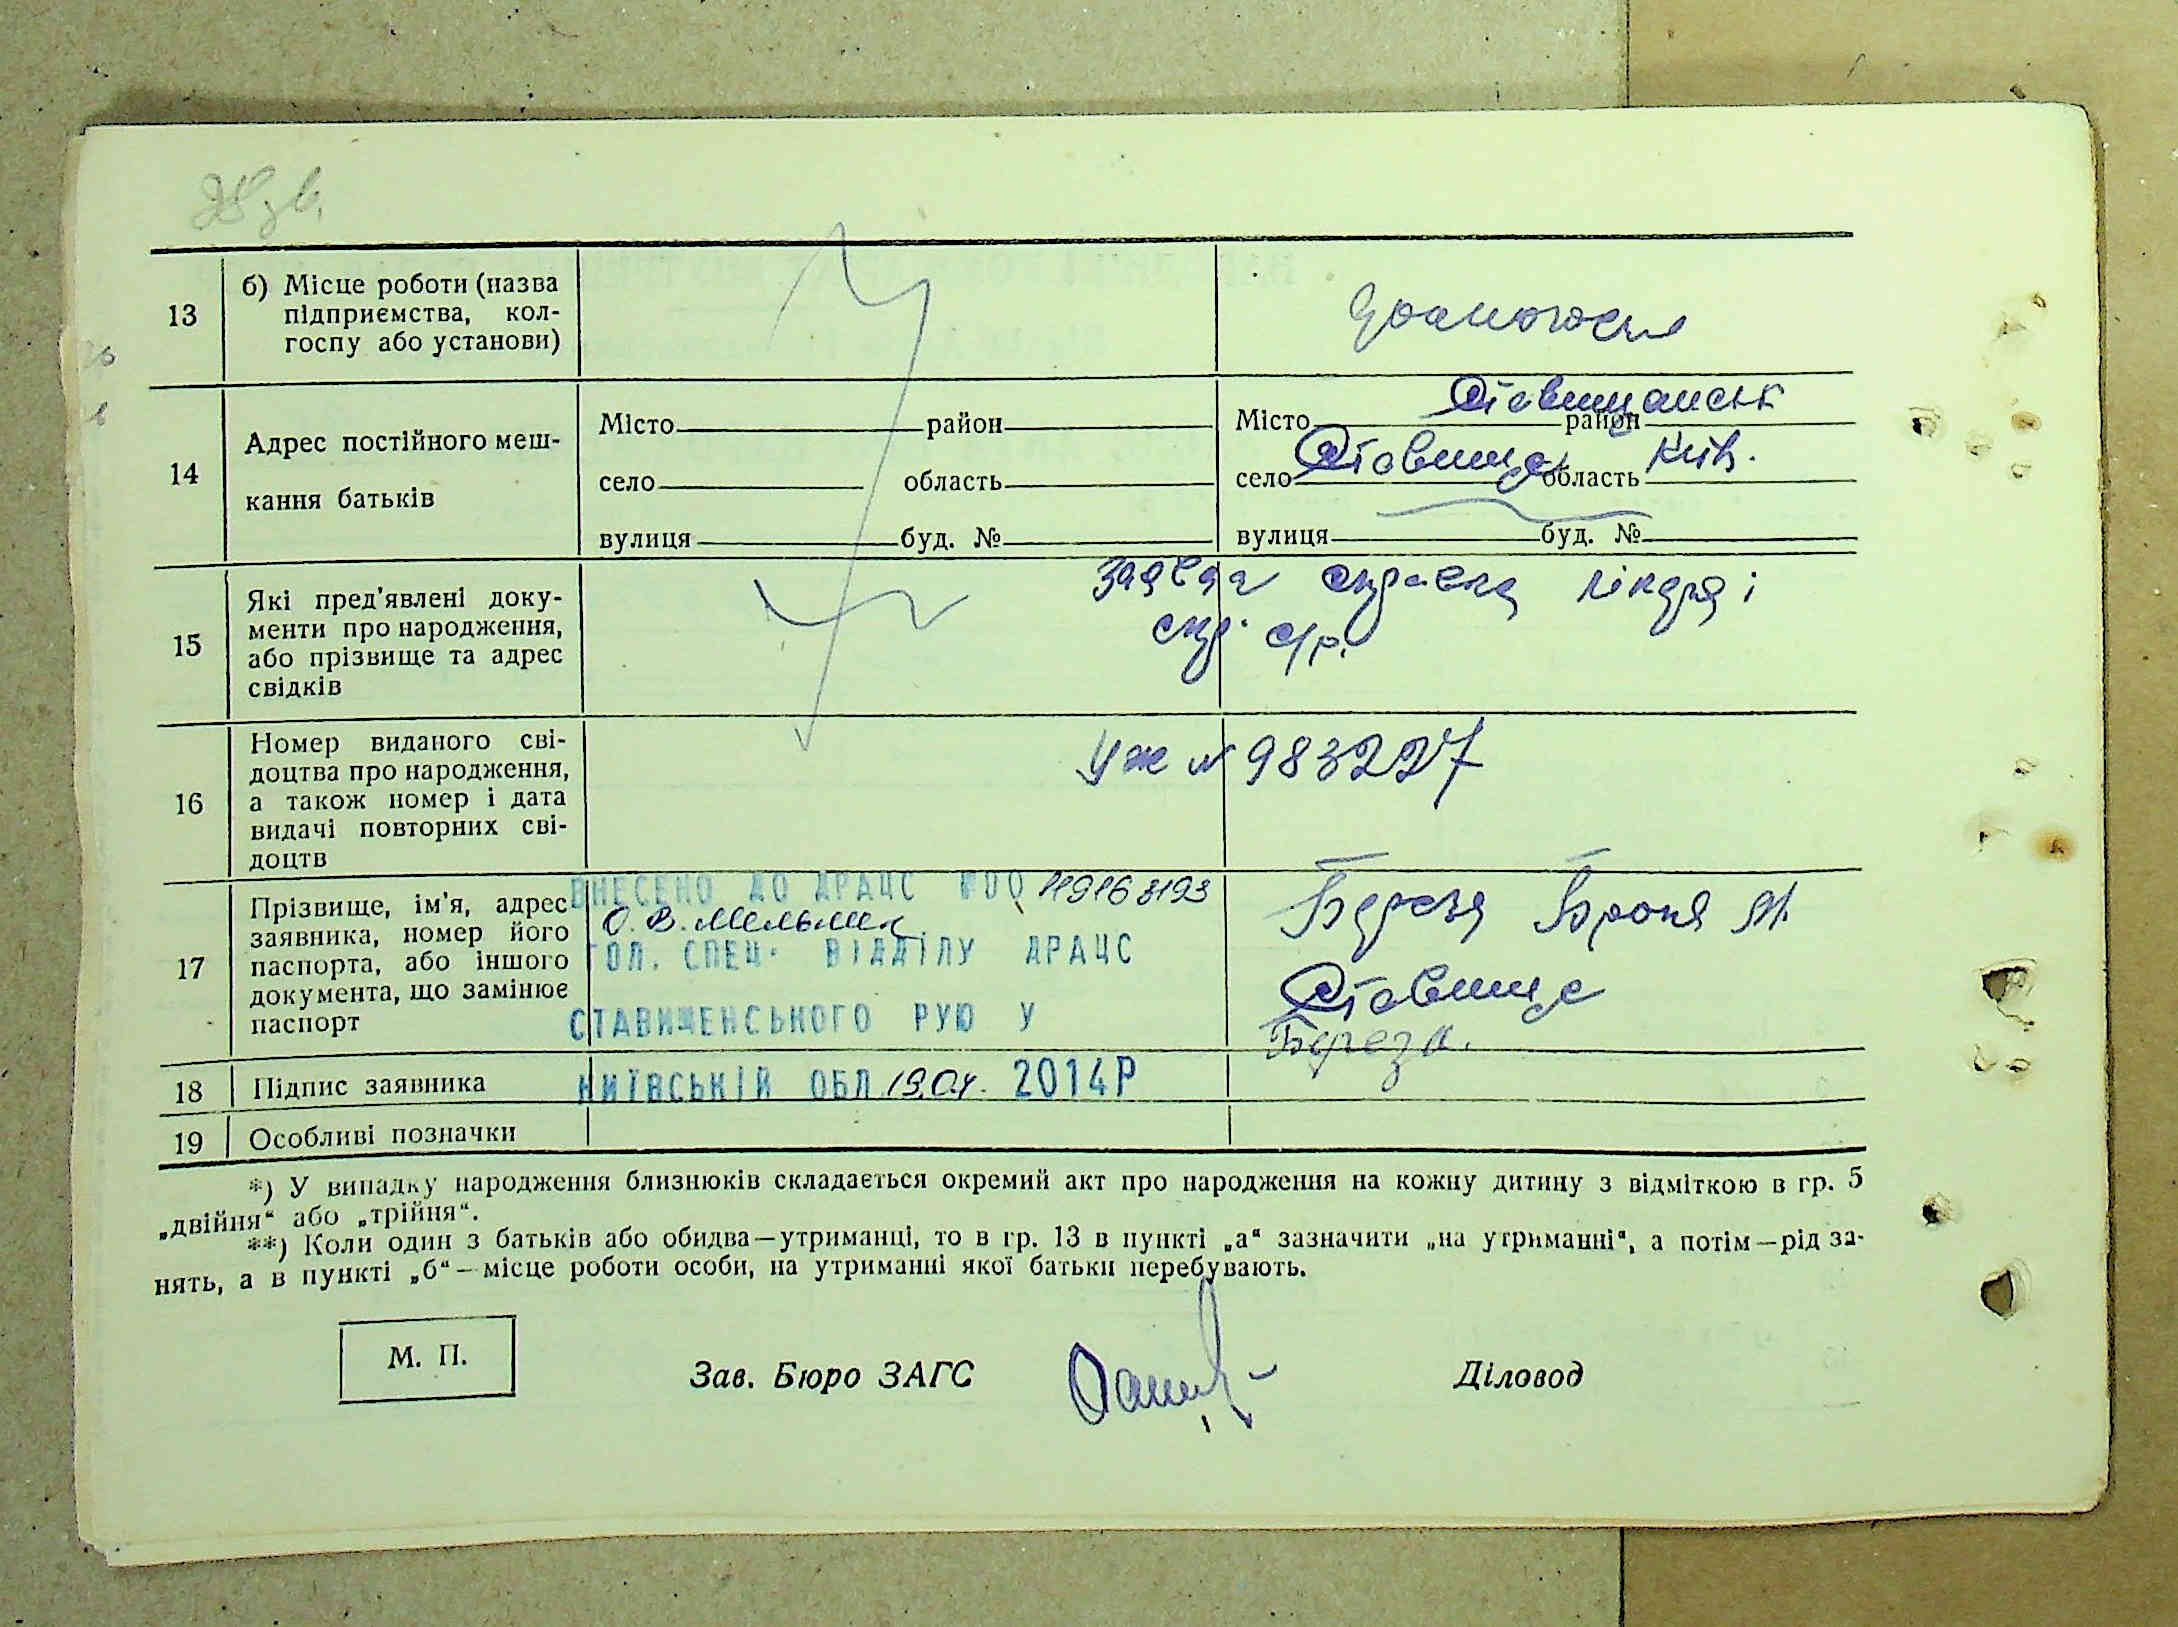 13
б) Місце роботи (назва
підприємства, кол-
госпу або установи)
14
Адрес постійного меш-
кання батьків
Місто район
село область
вулиця буд. №
Місто район Ставищанськ
село Ставище область Київ.
вулиця буд. №
15
Які пред'явлені доку-
менти про народження,
або прізвище та адрес
свідків
справка лікаря і
с/р.
16
Номер виданого сві-
доцтва про народження,
а також номер і дата
видачі повторних сві-
доцтв
УЖ № 983227
17
Прізвище, ім'я, адрес
заявника, номер його
паспорта, або іншого
документа, що замінює
паспорт
ВНЕСЕНО ДО ДРАЦС 00119163193
О. В. Мельник
ГОЛ. СПЕЦ. ВІДДІЛУ ДРАЦС
СТАВИЩЕНСЬКОГО РУЮ У
Береза Броня М.
Ставище
18
Підпис заявника
КИЇВСЬКІЙ ОБЛ 19.04. 2014Р
Береза.
19
Особливі позначки
*) У випадку народження близнюків складається окремий акт про народження на кожну дитину з відміткою в гр. 5
„двійня“ або „трійня“.
**) Коли один з батьків або обидва—утриманці, то в гр. 13 в пункті „а“ зазначити „на утриманні“, а потім—рід за-
нять, а в пункті „б“—місце роботи особи, на утриманні якої батьки перебувають.
М. П.
Зав. Бюро ЗАГС
Діловод